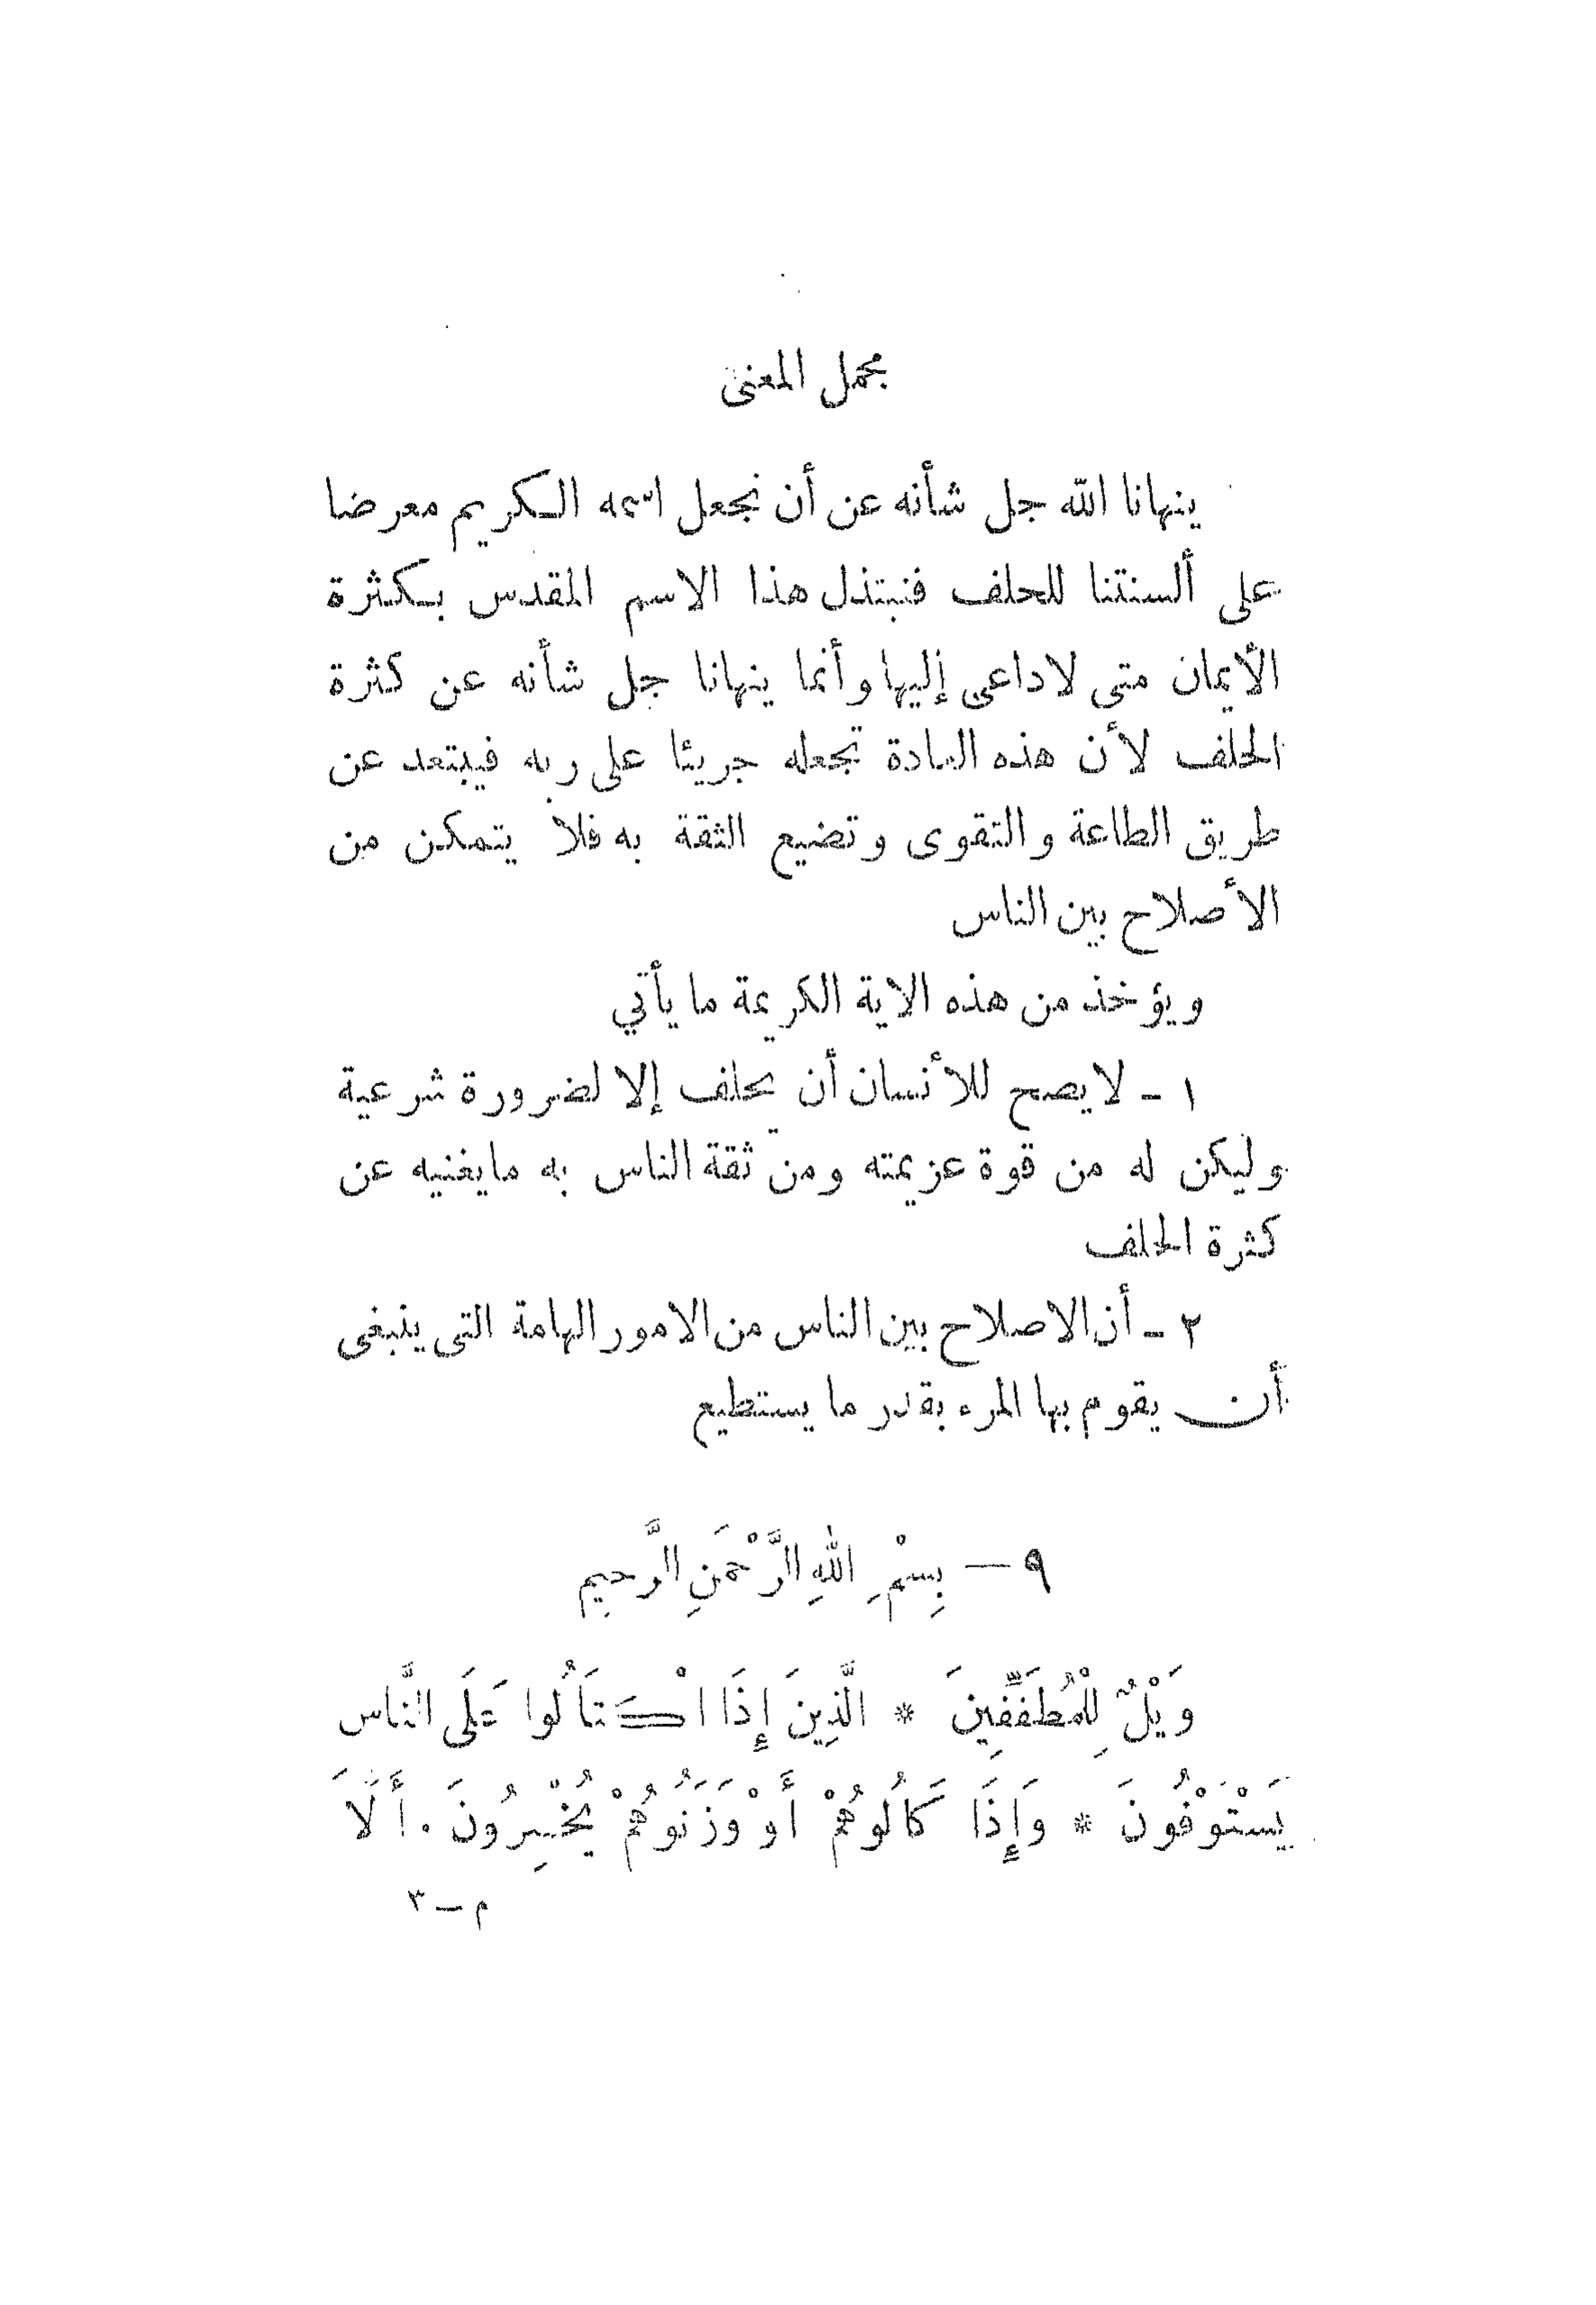 مجمل المعنى
ينهانا الله جل شأنه عن أن نجعل اسمه الكريم معرضا
على ألسنتنا للحلف فنبتذل هذا الاسم المقدس بكثرة
الأيمان متى لاداعى إليها وأنما ينهانا جل شأنه عن كثرة
الحلف لأن هذه العادة تجعله جريئا على ربه فيبتعد عن
طريق الطاعة والتقوى وتضيع الثقة به فلا يتمكن من
الأصلاح بين الناس
ويؤخذ من هذه الاية الكريمة ما يأتي
١ - لايصح للأنسان أن يحلف إلا لضرورة شرعية
وليكن له من قوة عزيمته ومن ثقة الناس به مايغنيه عن
كثرة الحلف
٢ - أن الاصلاح بين الناس من الامور الهامة التى ينبغى
أن يقوم بها المرء بقدر ما يستطيع
٩ — بِسْمِ اللهِ الرَّحْمَنِ الرَّحِيمِ
وَيْلٌ لِلْمُطَفِّفِينَ * الَّذِينَ إِذَا اكْتَالُوا عَلَى النَّاس
يَسْتَوْفُونَ * وَإِذَا كَالُوهُمْ أَوْ وَزَنُوهُمْ يُخْسِرُونَ . أَلَا
م — ٣